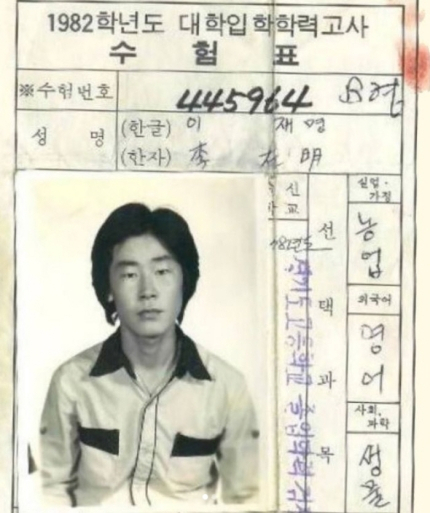 1982학년도 대학입학학력고사
수험표
※수험번호 445964
성 명 (한글) 이 재명
(한자) 李 在 明
선택과목
실업·가정 농업
외국어 영어
사회, 과학 생물